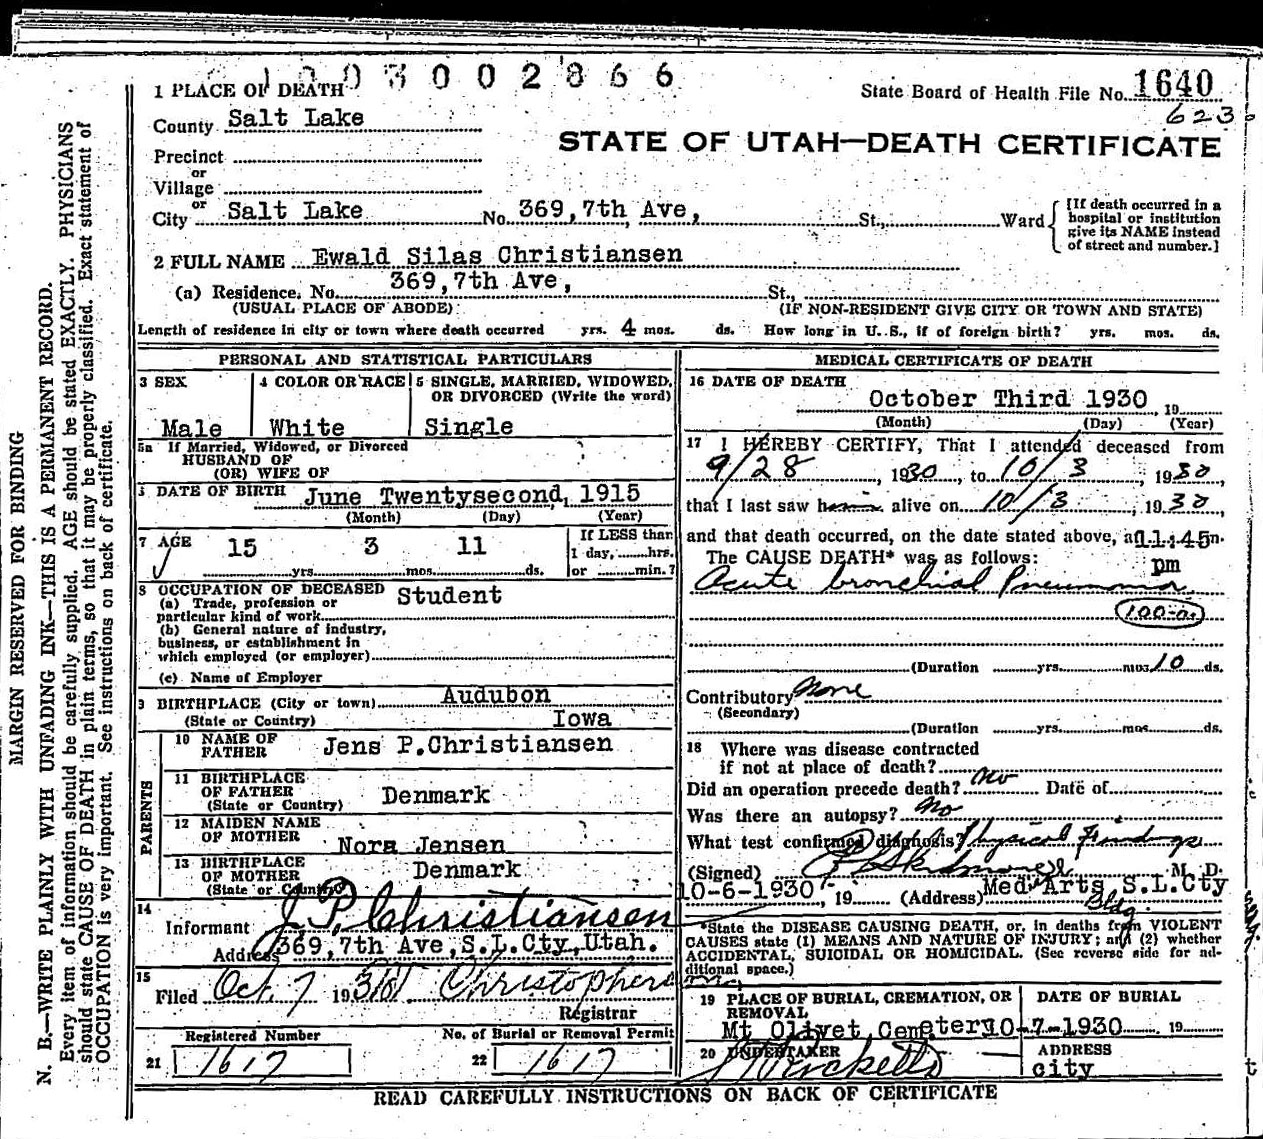 1003002866
1 PLACE OF DEATH
State Board of Health File No. 1640
County Salt Lake
623
STATE OF UTAH—DEATH CERTIFICATE
Precinct
or
Village
or
City Salt Lake No. 369,7th Ave, St., Ward
[If death occurred in a
hospital or institution
give its NAME instead
of street and number.]
2 FULL NAME Ewald Silas Christiansen
(a) Residence. No. 369,7th Ave, St.,
(USUAL PLACE OF ABODE) (IF NON-RESIDENT GIVE CITY OR TOWN AND STATE)
Length of residence in city or town where death occurred yrs. 4 mos. ds. How long in U. S., if of foreign birth? yrs. mos. ds.
PERSONAL AND STATISTICAL PARTICULARS
3 SEX
Male
4 COLOR OR RACE
White
5 SINGLE, MARRIED, WIDOWED,
OR DIVORCED (Write the word)
Single
5a If Married, Widowed, or Divorced
HUSBAND OF
(OR) WIFE OF
DATE OF BIRTH June Twentysecond, 1915
(Month) (Day) (Year)
7 AGE
15 yrs. 3 mos. 11 ds.
If LESS than
1 day, hrs.
or min.?
8 OCCUPATION OF DECEASED Student
(a) Trade, profession or
particular kind of work
(b) General nature of industry,
business, or establishment in
which employed (or employer)
(c) Name of Employer
9 BIRTHPLACE (City or town) Audubon
(State or Country) Iowa
PARENTS
10 NAME OF
FATHER Jens P.Christiansen
11 BIRTHPLACE
OF FATHER
(State or Country) Denmark
12 MAIDEN NAME
OF MOTHER Nora Jensen
13 BIRTHPLACE
OF MOTHER
(State or Country) Denmark
14
Informant J. P. Christiansen
Address 369,7th Ave,S.L.Cty,Utah.
15
Filed Oct. 7 19
Registrar
Registered Number
21 1617
No. of Burial or Removal Permit
22 1617
MEDICAL CERTIFICATE OF DEATH
16 DATE OF DEATH
October Third 1930, 19
(Month) (Day) (Year)
17 I HEREBY CERTIFY, That I attended deceased from
9/28, 1930, to 10/3, 1930,
that I last saw h alive on 10/3, 1930,
and that death occurred, on the date stated above, at 11:45 m.
pm
The CAUSE DEATH* was as follows:
Acute bronchial Pneumonia
(Duration yrs. mos. 10 ds.
Contributory None
(Secondary)
(Duration yrs. mos. ds.
18 Where was disease contracted
if not at place of death?
Did an operation precede death? No Date of
Was there an autopsy? No
What test confirmed diagnosis? Physical Findings
(Signed) M. D.
10-6-1930, 19 (Address) Med Arts S.L.Cty
Bldg.
*State the DISEASE CAUSING DEATH, or, in deaths from VIOLENT
CAUSES state (1) MEANS AND NATURE OF INJURY; and (2) whether
ACCIDENTAL, SUICIDAL OR HOMICIDAL. (See reverse side for ad-
ditional space.)
19 PLACE OF BURIAL, CREMATION, OR
REMOVAL
Mt Olivet Cemetery
DATE OF BURIAL
10-7-1930 19
20 UNDERTAKER
ADDRESS
city
READ CAREFULLY INSTRUCTIONS ON BACK OF CERTIFICATE
MARGIN RESERVED FOR BINDING
N. B.—WRITE PLAINLY WITH UNFADING INK—THIS IS A PERMANENT RECORD.
Every item of information should be carefully supplied. AGE should be stated EXACTLY. PHYSICIANS
should state CAUSE OF DEATH in plain terms, so that it may be properly classified. Exact statement of
OCCUPATION is very important. See instructions on back of certificate.